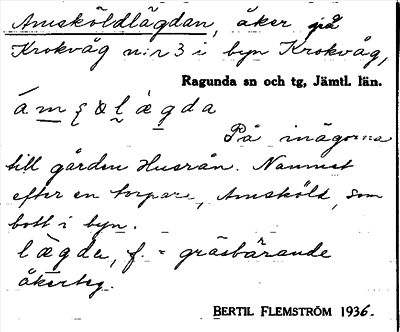 Amsköldlägdan, åker på
Krokvåg n:r 3 i byn Krokvåg,
Ragunda sn och tg, Jämtl. län.
På inägorna
till gården Husrån. Namnet
efter en torpare, Amsköld, som
bott i byn.
lægda, f. = gräsbärande
åkerteg.
BERTIL FLEMSTRÖM 1936.